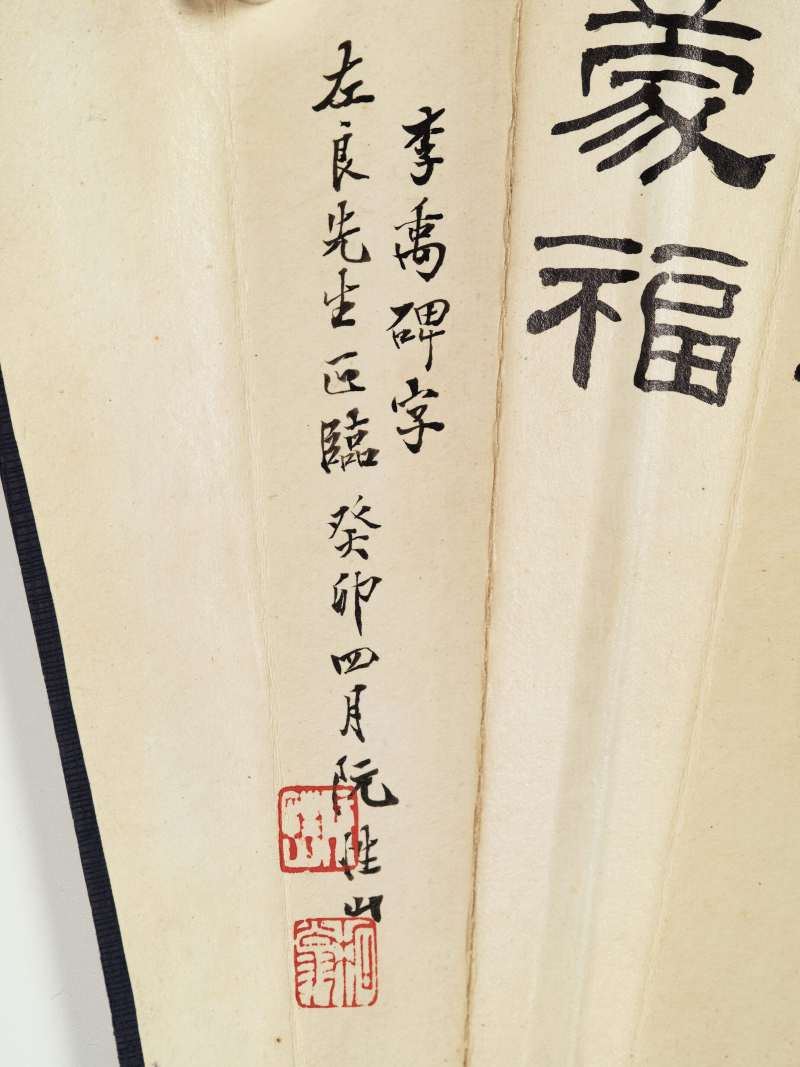 蒙福
李禹碑字
左良先生正臨 癸卯四月阮性山